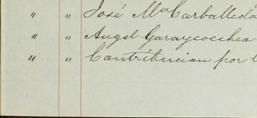 " " José Mª Carballeda
" " Angel Garaycochea
" " Contribucion por